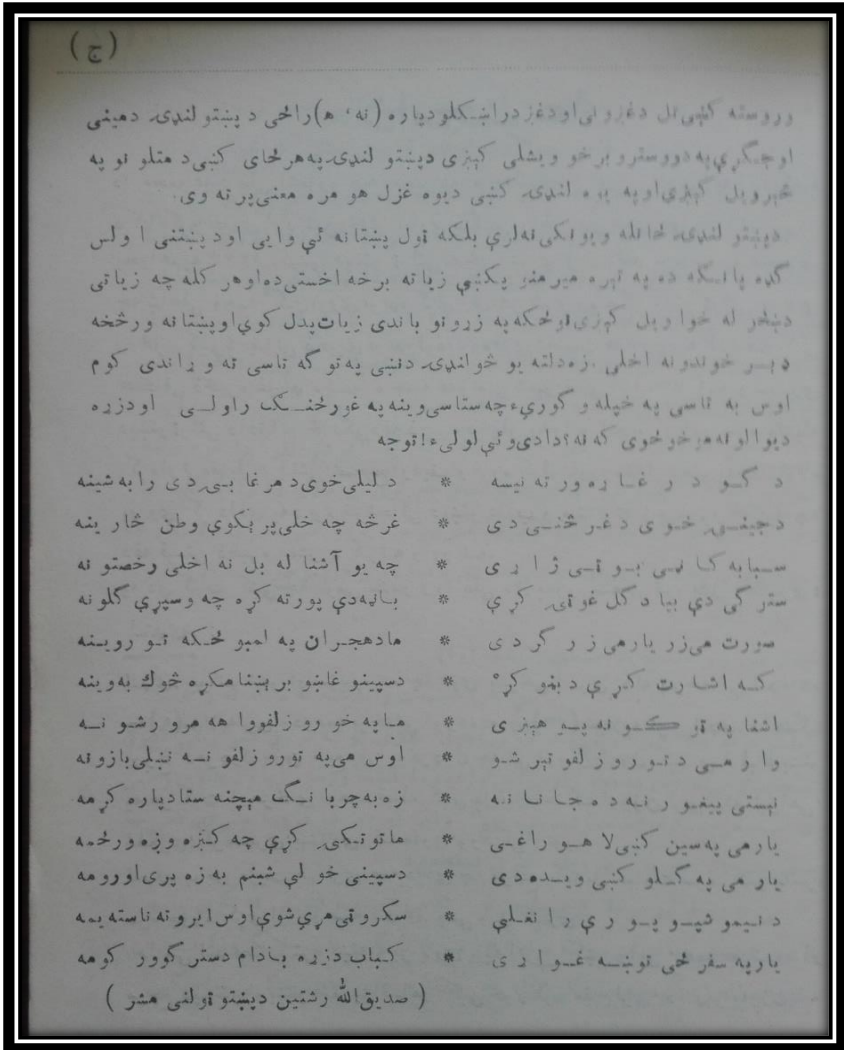 (ج)
وروسته کښې تل دغزونی اودغز دراښکلو دپاره (نه، ه) راځی د پښتو لنډۍ دمینی
اوجنګړې په دووسترو برخو ویشلی کېږی دپښتو لنډۍ په هرځای کښې د متلو نو په
څېر ویل کېږی او په یوه لنډۍ کښې دیوه غزل هو مره معنی پر ته وی.
دپښتو لنډۍ ځانله ویو نکی نه لري بلکه ټول پښتانه ئې وایی او د پښتنی اولس
ګډه پانګه ده په تېره میرمنو پکښې زیاته برخه اخستی ده اوهر کله چه زیاتی
دښځو له خوا ویل کېږی نو ځکه په زړونو باندی زیات پدل کوي او پښتانه ورڅخه
ډېر خوندونه اخلی . زه دلته یو څو لنډۍ دننښی په توګه تاسی ته وړاندی کوم
اوس به تاسی په خپله وګورئ چه ستاسی وینه په غورځنګ راولی اودزړه
دیوالونه مو خوځوی که نه؟ دادی وئې لولئ! توجه
د ګودر غاړه ورته نیسه * د لیلی خوی د مرغابۍ دی رابه شینه
دجینۍ خوی دغرڅنی دی * غرڅه چه خلی پرېکوي وطن ځارینه
سبابه کانی بوټی ژاړی * چه یو آشنا له بل نه اخلی رخصتونه
سترګی دې بیا د ګل غوټۍ کړې * بانه دې پورته کړه چه وسپړي ګلونه
صورت می زړ یارمی زرګر دی * مادهجران په لمبو ځکه تو روینه
که اشارت کړې د بڼو کړه * دسپینو غاښو برېښنا مکړه څوك به وینه
اشنا په تورکونه پوهېږی * مایه خوړو زلفووا هه مروړشونه
وار می د تورو زلفو تېر شو * اوس می په تورو زلفو نه نښلی بازونه
نېستی پیغور نه ده جانانه * زه به چړبانګ مېچنه ستادپاره کړمه
یارمی په سین کښې لاهو راغی * ماتوتکۍ کړې چه کېږه وزه ورځمه
یار می په ګلو کښې ویده دی * دسپینی خولې شبنم به زه پرې اورومه
د نیمو شپو یو رې رانغلې * سکروټی مړې شوې اوس ایرو ته ناسته یمه
یار په سفر ځی توښه غواړی * کباب دزړه بادام دسترګو ورکومه
( صدیق الله رشتین دپښتو ټولنی مشر )